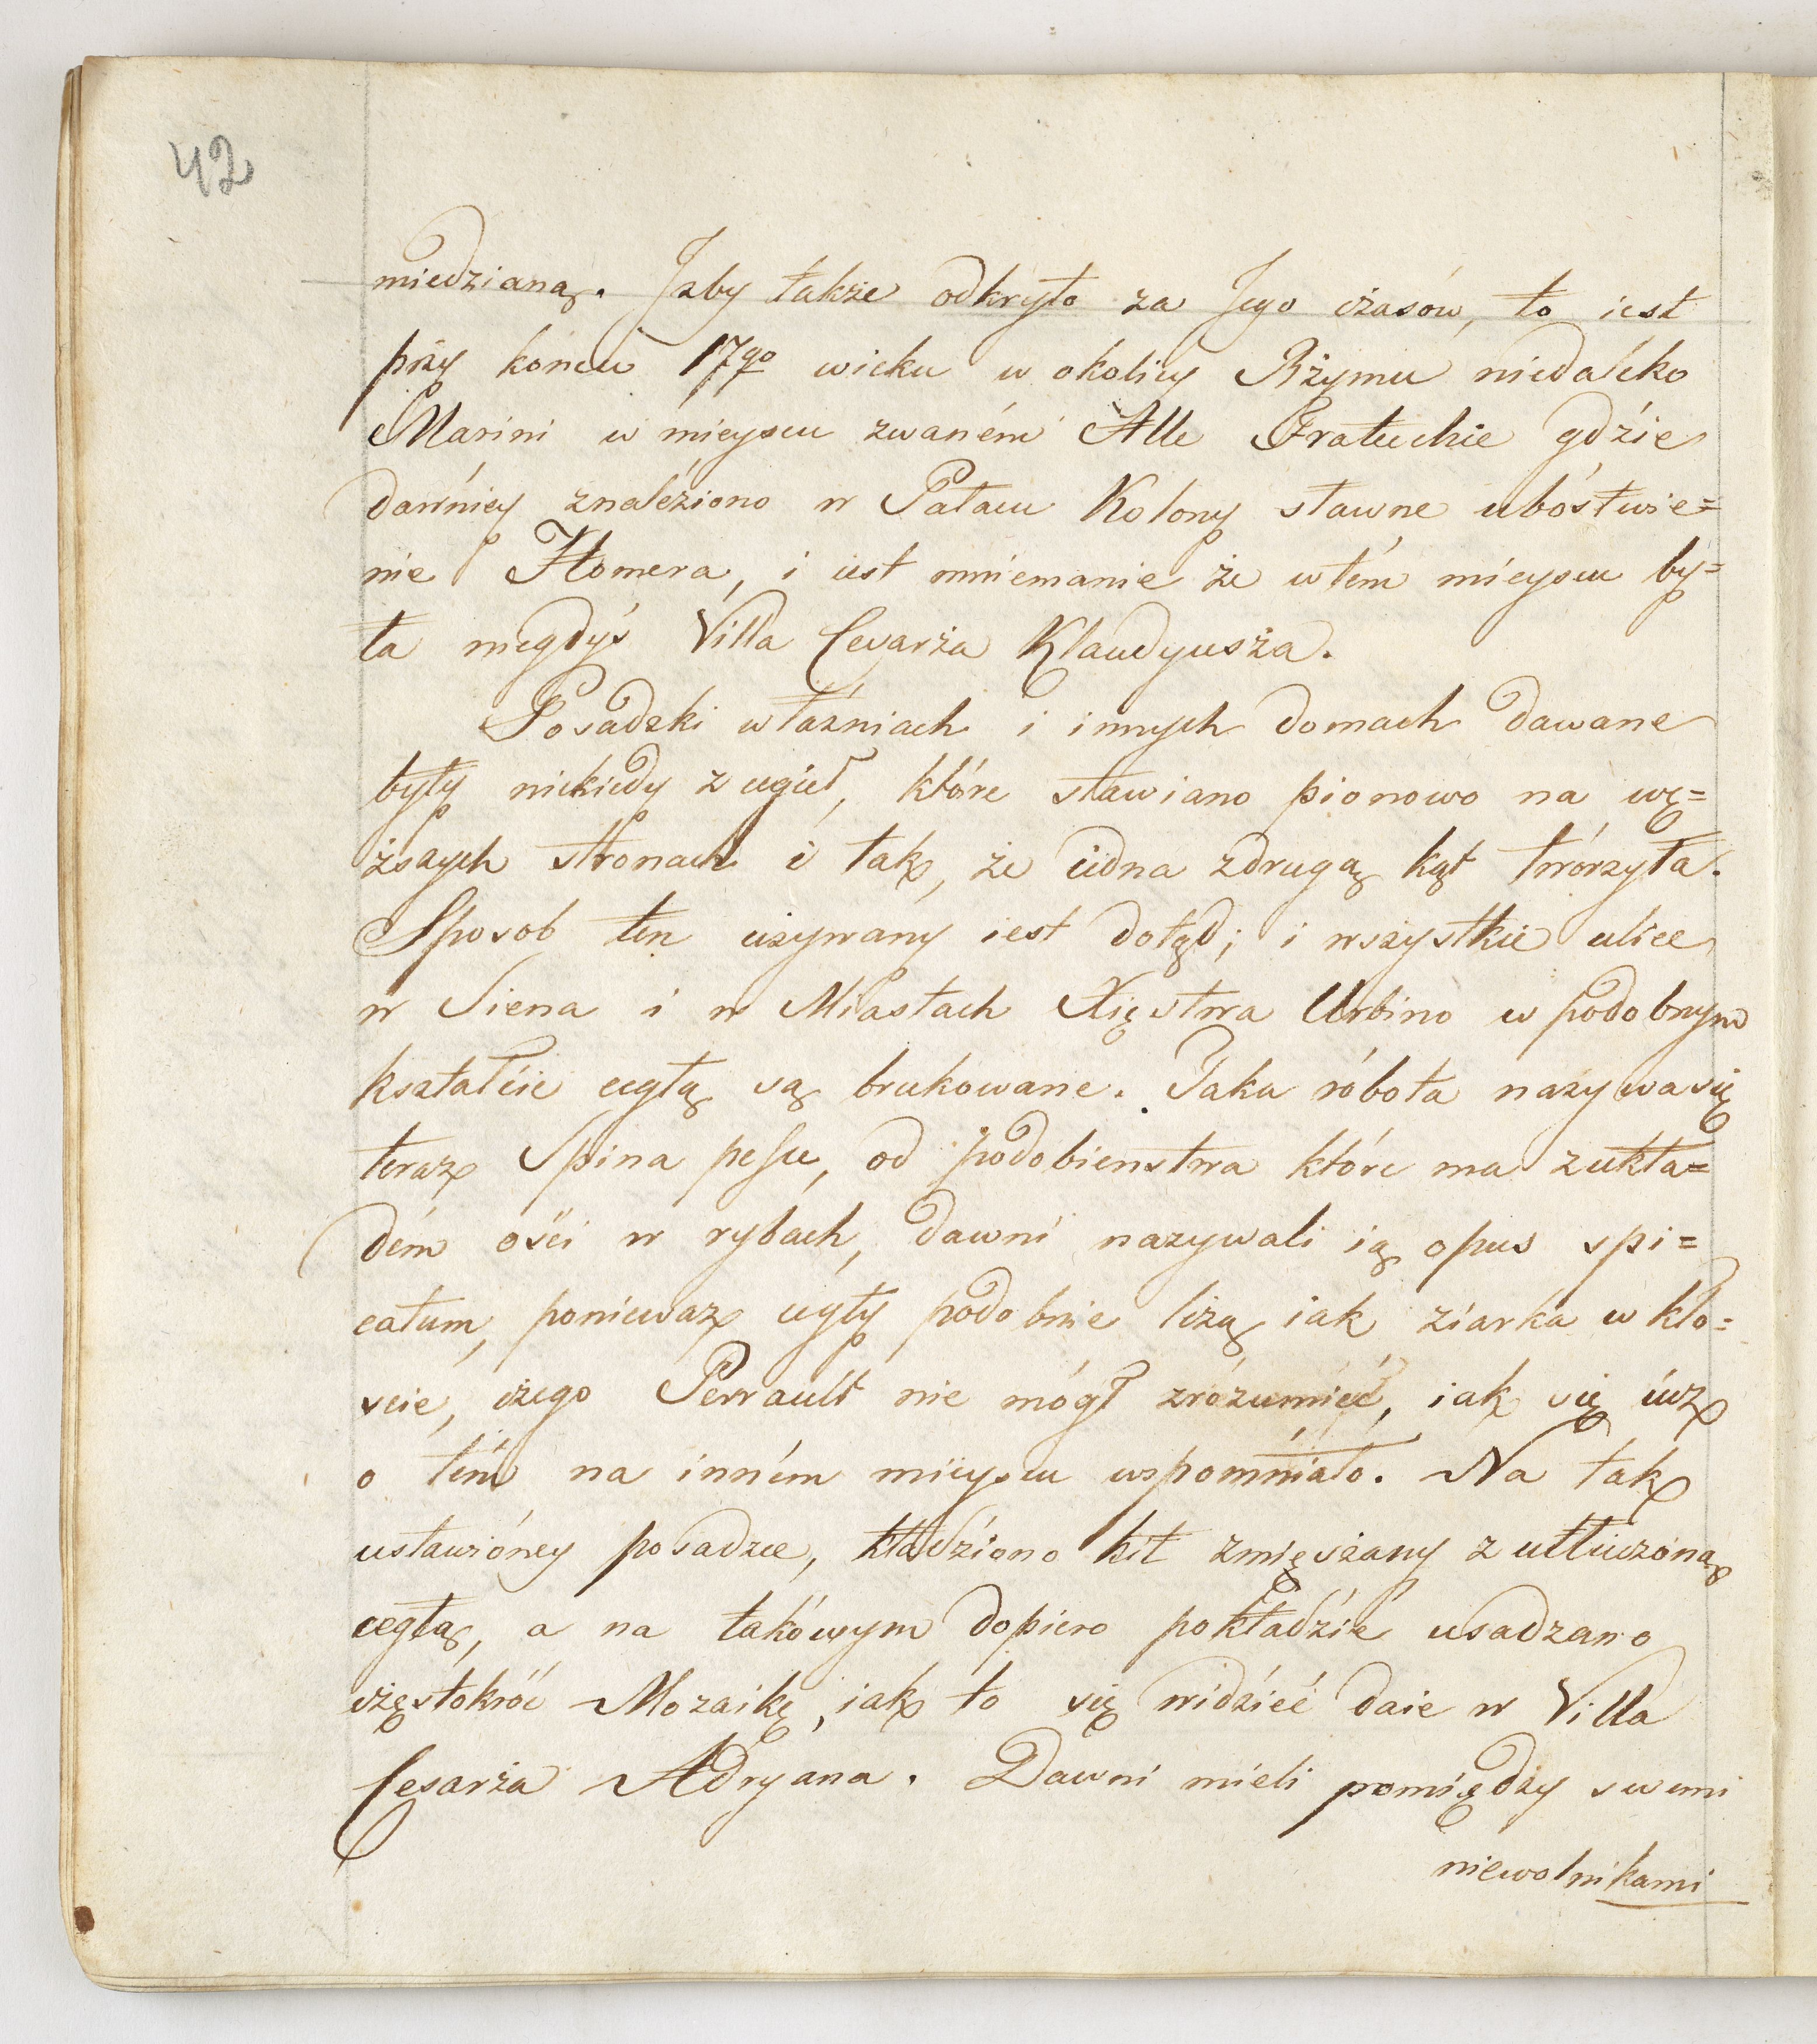 42
miedzianą. Izby także odkryto za Jego czasów, to iest
przy koncu 17go wieku w okolicy Rzymu niedaleko
Marini w mieyscu zwaném Alle Fratuchie gdzie
dawniey znaleziono w Pałacu Kolony sławne ubóstwie=
nie Homera, i iest mniemanie że w tém mieyscu by=
ła niegdyś Villa Cesarza Klaudyusza.
Posadzki w łaźniach i innych domach dawane
były niekiedy z cegieł, które stawiano pionowo na wę=
ższych stronach i tak, że iedna z drugą kąt tworzyła.
Sposob ten używany iest dotąd; i wszystkie ulice
w Siena i w Miastach Xięstwa Urbino w podobnym
kształcie cegłą są brukowane. Taka robota nazywa się
teraz Spina pesce, od podobienstwa które ma z ukła=
dém ości w rybach, dawni nazywali ią opus spi=
catum, ponieważ cegły podobnie leżą iak ziarka w kło=
scie, czego Perrault nie mógł zrozumieć, iak się iuż
o tém na inném mieyscu wspomniało. Na tak
ustawioney posadzce, kładziono kit zmięszany z utłuczoną
cegłą, a na takowym dopiero pokładzie usadzano
częstokróć Mozaikę, iak to się widzieć daie w Villa
Cesarza Adryana. Dawni mieli pomiędzy swemi
niewolnikami